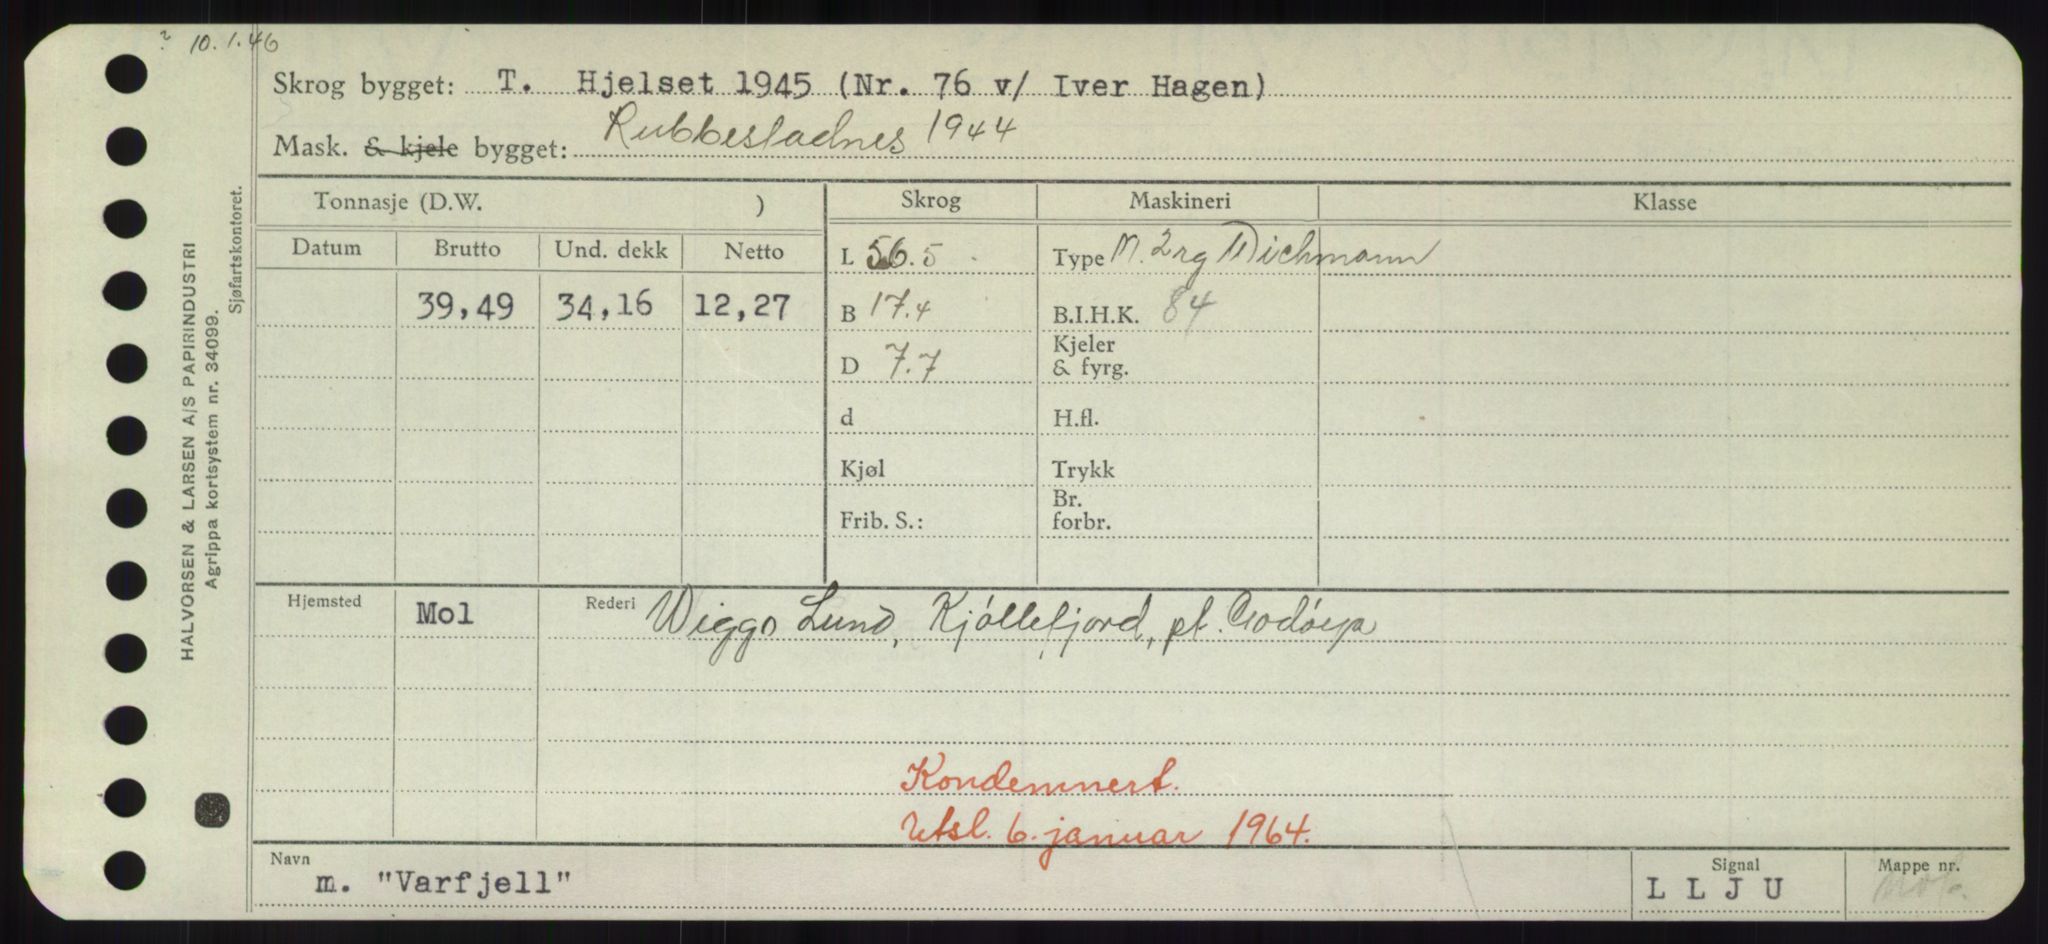 ? 10.1.46
Skrog bygget: T. Hjelset 1945 (Nr. 76 v/ Iver Hagen)
Mask. & kjele bygget: Rubbestadnes 1944
Tonnasje (D.W. ) Skrog Maskineri Klasse
Datum Brutto Und. dekk Netto
39,49 34,16 12,27
L 56.5
B 17.4
D 7.7
d
Kjøl
Frib. S.:
Type M. 2 Wichmann
B.I.H.K. 84
Kjeler
& fyrg.
H.fl.
Trykk
Br.
forbr.
Hjemsted Mol Rederi Wiggo Lund, Kjøllefjord, pt.
Kondemnert.
Utsl. 6. januar 1964.
Navn m. "Varfjell"
Signal L L J U
Mappe nr.
HALVORSEN & LARSEN A/S PAPIRINDUSTRI
Agrippa kortsystem nr. 34099.
Sjøfartskontoret.